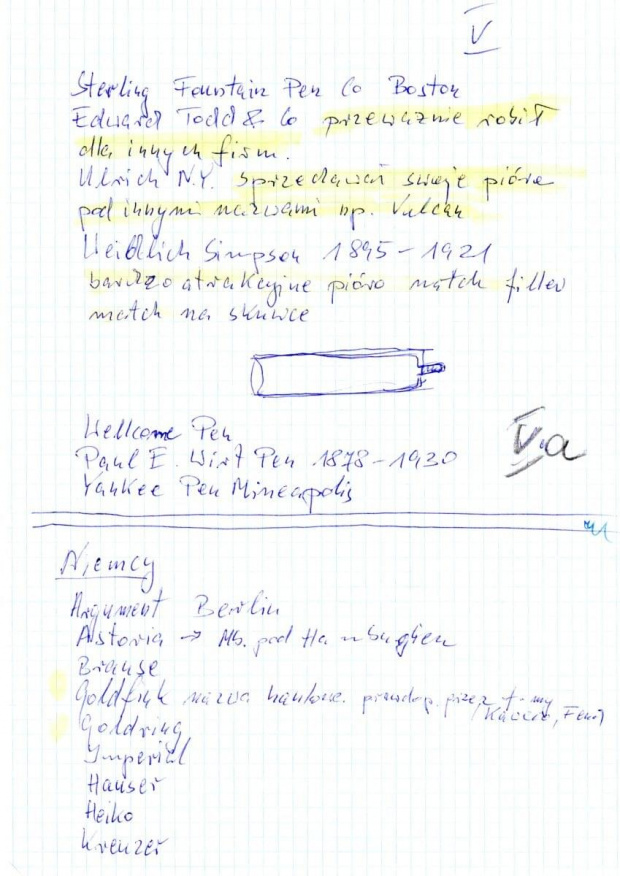 V
Sterling Fountain Pen Co Boston
Edward Todd & Co przeważnie robił
dla innych firm.
Ulrich N.Y. sprzedawał swoje pióra
pod innymi nazwami np. Vulcan
Weidlich Simpson 1895 - 1921
bardzo atrakcyjne pióro match filler
match na skuwce
Wellcome Pen
V.a
Paul E. Wirt Pen 1878 - 1930
Yankee Pen Mineapolis
Niemcy
Argument Berlin
Astoria → Mb. pod Hamburgiem
Brause
Goldfink nazwa prawdop. przez
Goldring
Imperial
Hauser
Heiko
Kreuzer